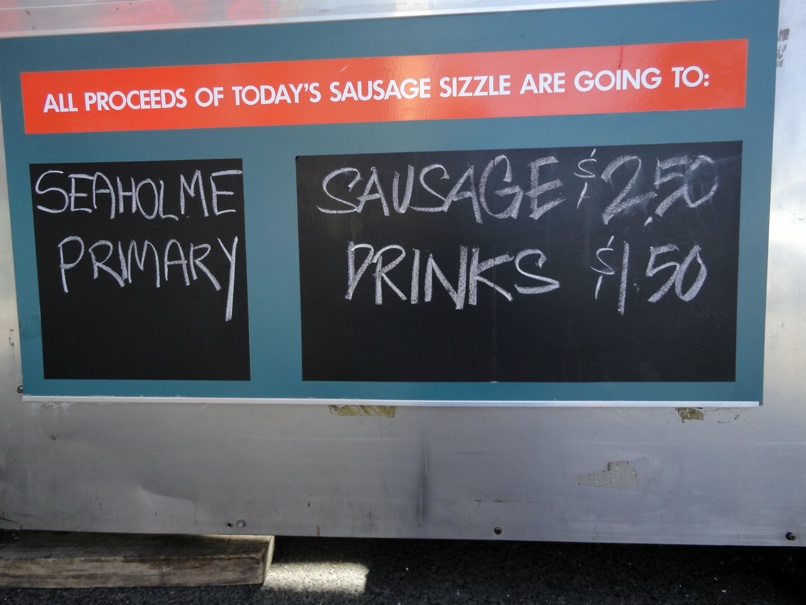 ALL PROCEEDS OF TODAY'S SAUSAGE SIZZLE ARE GOING TO:
SEAHOLME
PRIMARY
SAUSAGE $2.50
DRINKS $1.50